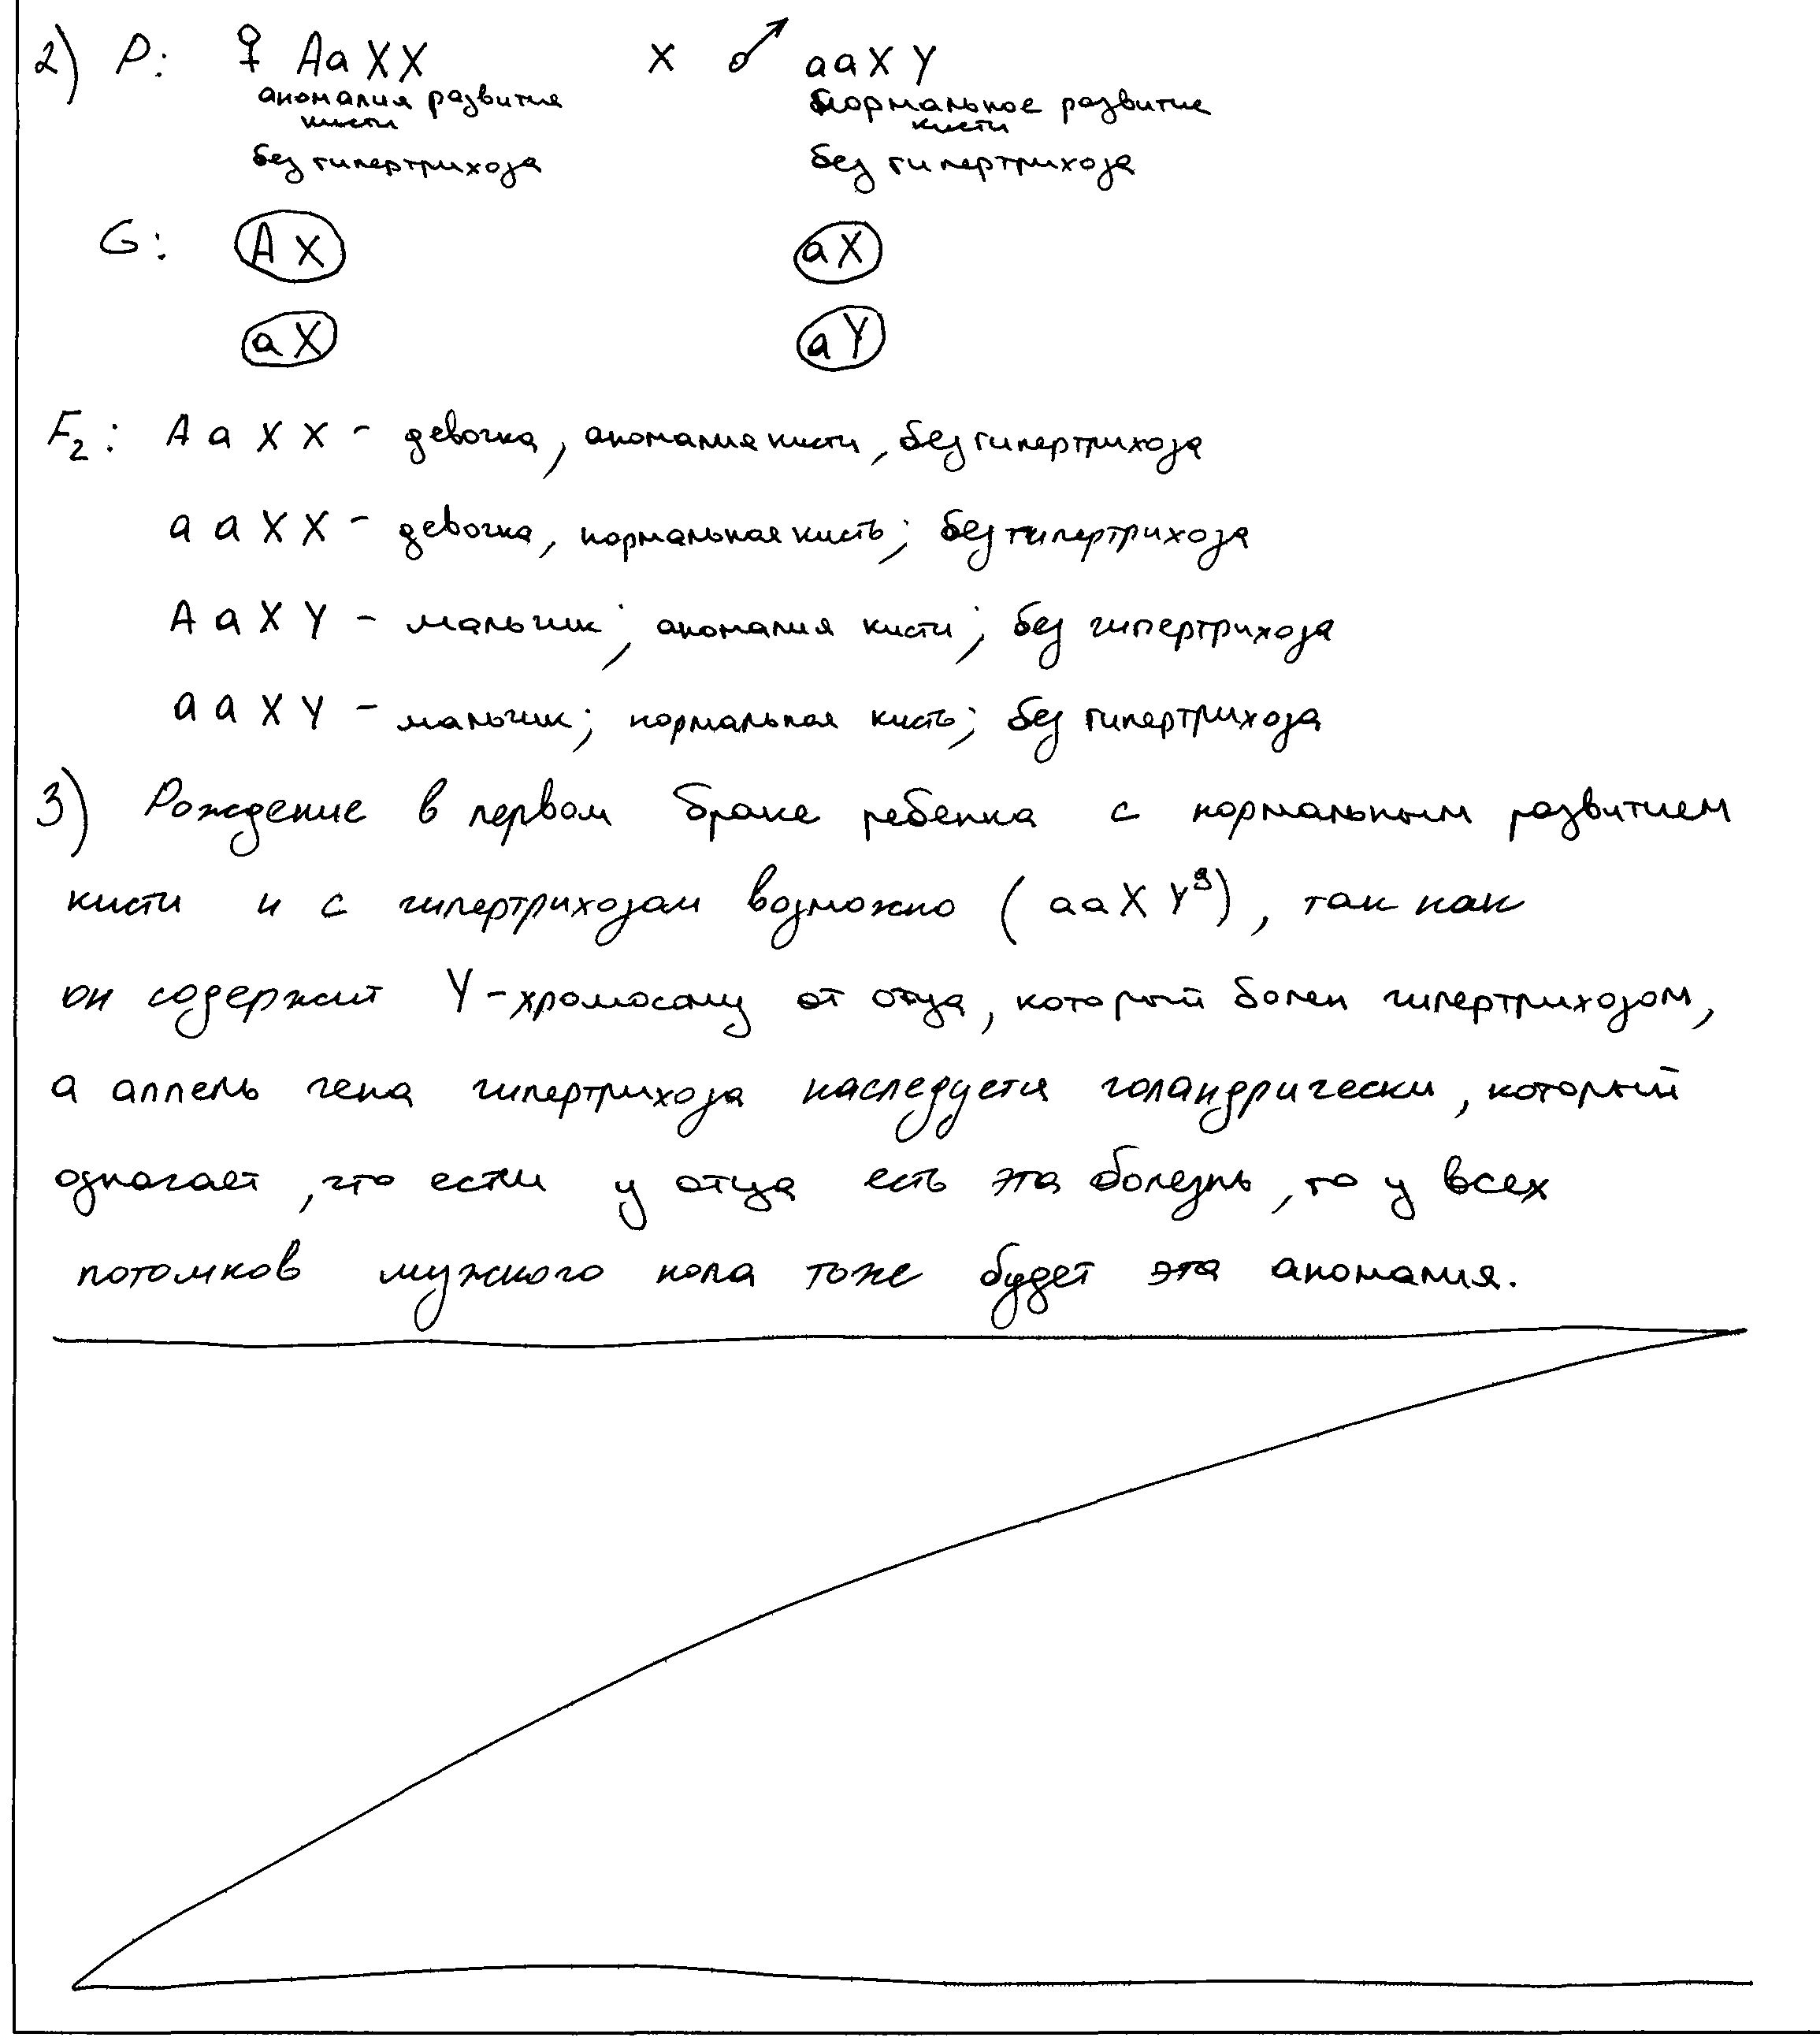 2) P: ♀ Aa XX x ♂ aa X Y
аномалия развития нормальное развитие
кисти кисти
без гипертрихоза без гипертрихоза
G: A X a X
a X a Y
F2: A a X X - девочка, аномалия кисти, без гипертрихоза
a a X X - девочка, нормальная кисть; без гипертрихоза
A a X Y - мальчик; аномалия кисти; без гипертрихоза
a a X Y - мальчик; нормальная кисть; без гипертрихоза
3) Рождение в первом браке ребенка с нормальным развитием
кисти и с гипертрихозом возможно (aa X Y), так как
он содержит Y-хромосому от отца, который болен гипертрихозом,
а аллель гена гипертрихоза наследуется голандрически, который
если у отца есть эта болезнь, то у всех
потомков мужского пола тоже будет эта аномалия.